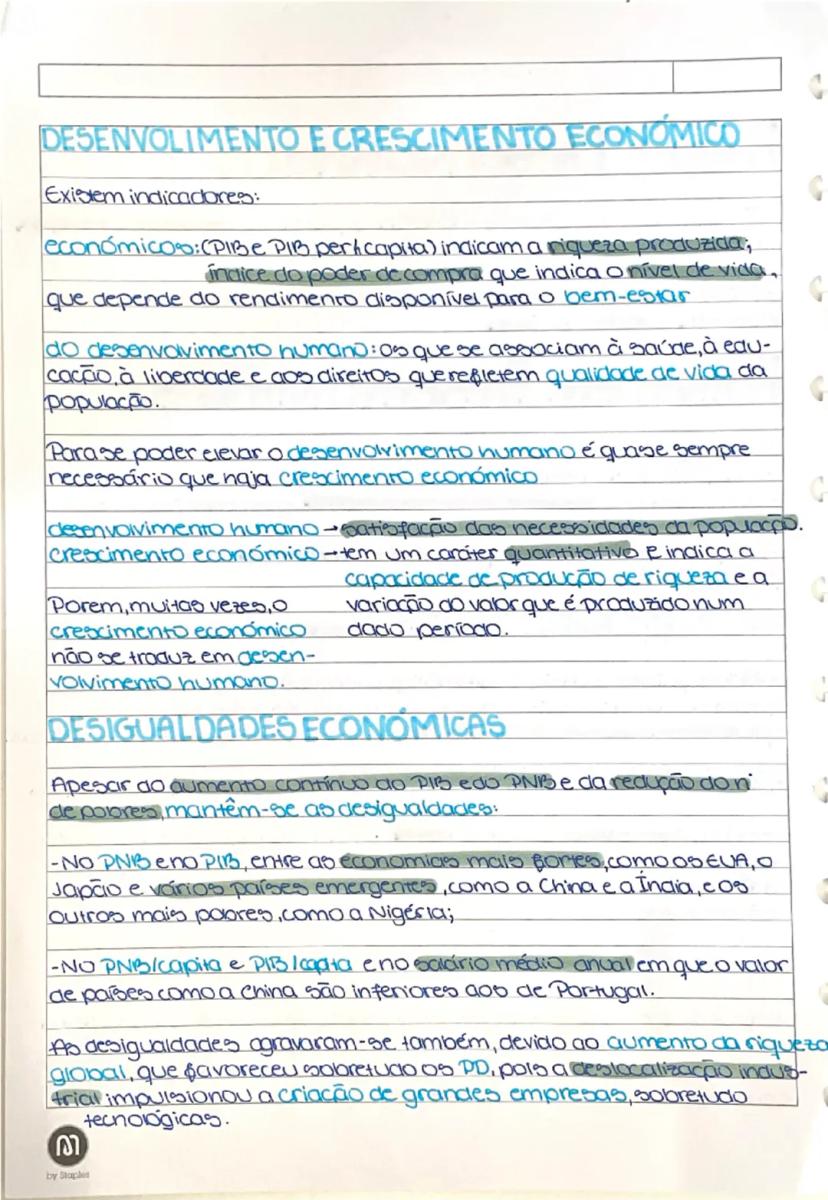 DESENVOLIMENTO E CRESCIMENTO ECONÓMICO
Existem indicadores:
económicos: (PIB e PIB per capita) indicam a riqueza produzida;
índice do poder de compra que indica o nível de vida,
que depende do rendimento disponível para o bem-estar
do desenvolvimento humano: os que se associam à saúde, à edu-
cação, à liberdade e aos direitos que refletem qualidade de vida da
população.
Para se poder elevar o desenvolvimento humano é quase sempre
necessário que haja crescimento económico
desenvolvimento humano → satisfação das necessidades da população.
crescimento económico → tem um caráter quantitativo e indica a
capacidade de produção de riqueza e a
variação do valor que é produzido num
dado período.
Porem, muitas vezes, o
crescimento económico
não se traduz em desen-
volvimento humano.
DESIGUALDADES ECONÓMICAS
Apesar do aumento contínuo do PIB e do PNB e da redução do nº
de pobres, mantêm-se as desigualdades:
-No PNB e no PIB, entre as economias mais fortes, como os EUA, o
Japão e vários países emergentes, como a China e a Índia, e os
outros mais pobres, como a Nigéria;
-No PNB/capita e PIB/capita e no salário médio anual em que o valor
de países como a China são inferiores aos de Portugal.
As desigualdades agravaram-se também, devido ao aumento da riqueza
global, que favoreceu sobretudo os PD, pois a deslocalização indus-
trial impulsionou a criação de grandes empresas, sobretudo
tecnológicas.
by Staples